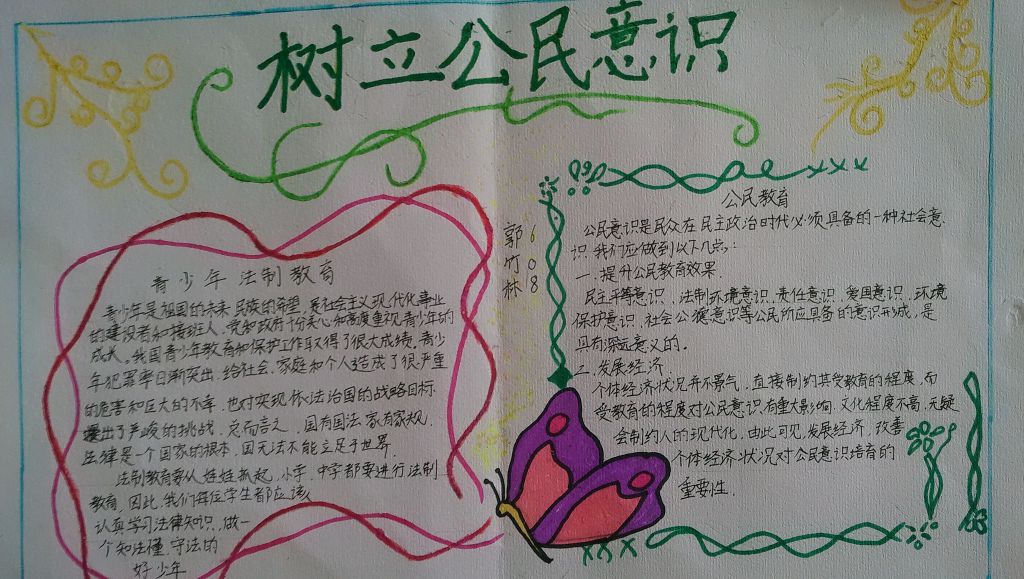 树立公民意识
青少年法制教育
青少年是祖国的未来,民族的希望,是社会主义现代化事业
的建设者和接班人,党和政府十分关心和高度重视青少年的
成长。我国青少年教育和保护工作取得了很大成绩,青少
年犯罪率日渐突出,给社会、家庭和个人造成了很严重
的危害和巨大的不幸,也对实现依法治国的战略目标
提出了严峻的挑战,总而言之,国有国法,家有家规,
法律是一个国家的根本,国无法不能立足于世界.
法制教育要从娃娃抓起,小学、中学都要进行法制
教育,因此,我们每位学生都应该
认真学习法律知识,做一
个知法懂、守法的
好少年
郭竹林
608
公民教育
公民意识是民众在民主政治时代必须具备的一种社会意
识.我们应做到以下几点:
一.提升公民教育效果.
民主平等意识、法制环境意识、责任意识、爱国意识、环境
保护意识、社会公德意识等公民所应具备的意识形成,是
具有深远意义的。
二.发展经济.
个体经济状况并不景气,直接制约其受教育的程度,而
受教育的程度对公民意识有重大影响.文化程度不高,无疑
会制约人的现代化,由此可见,发展经济,改善
个体经济状况对公民意识培育的
重要性.